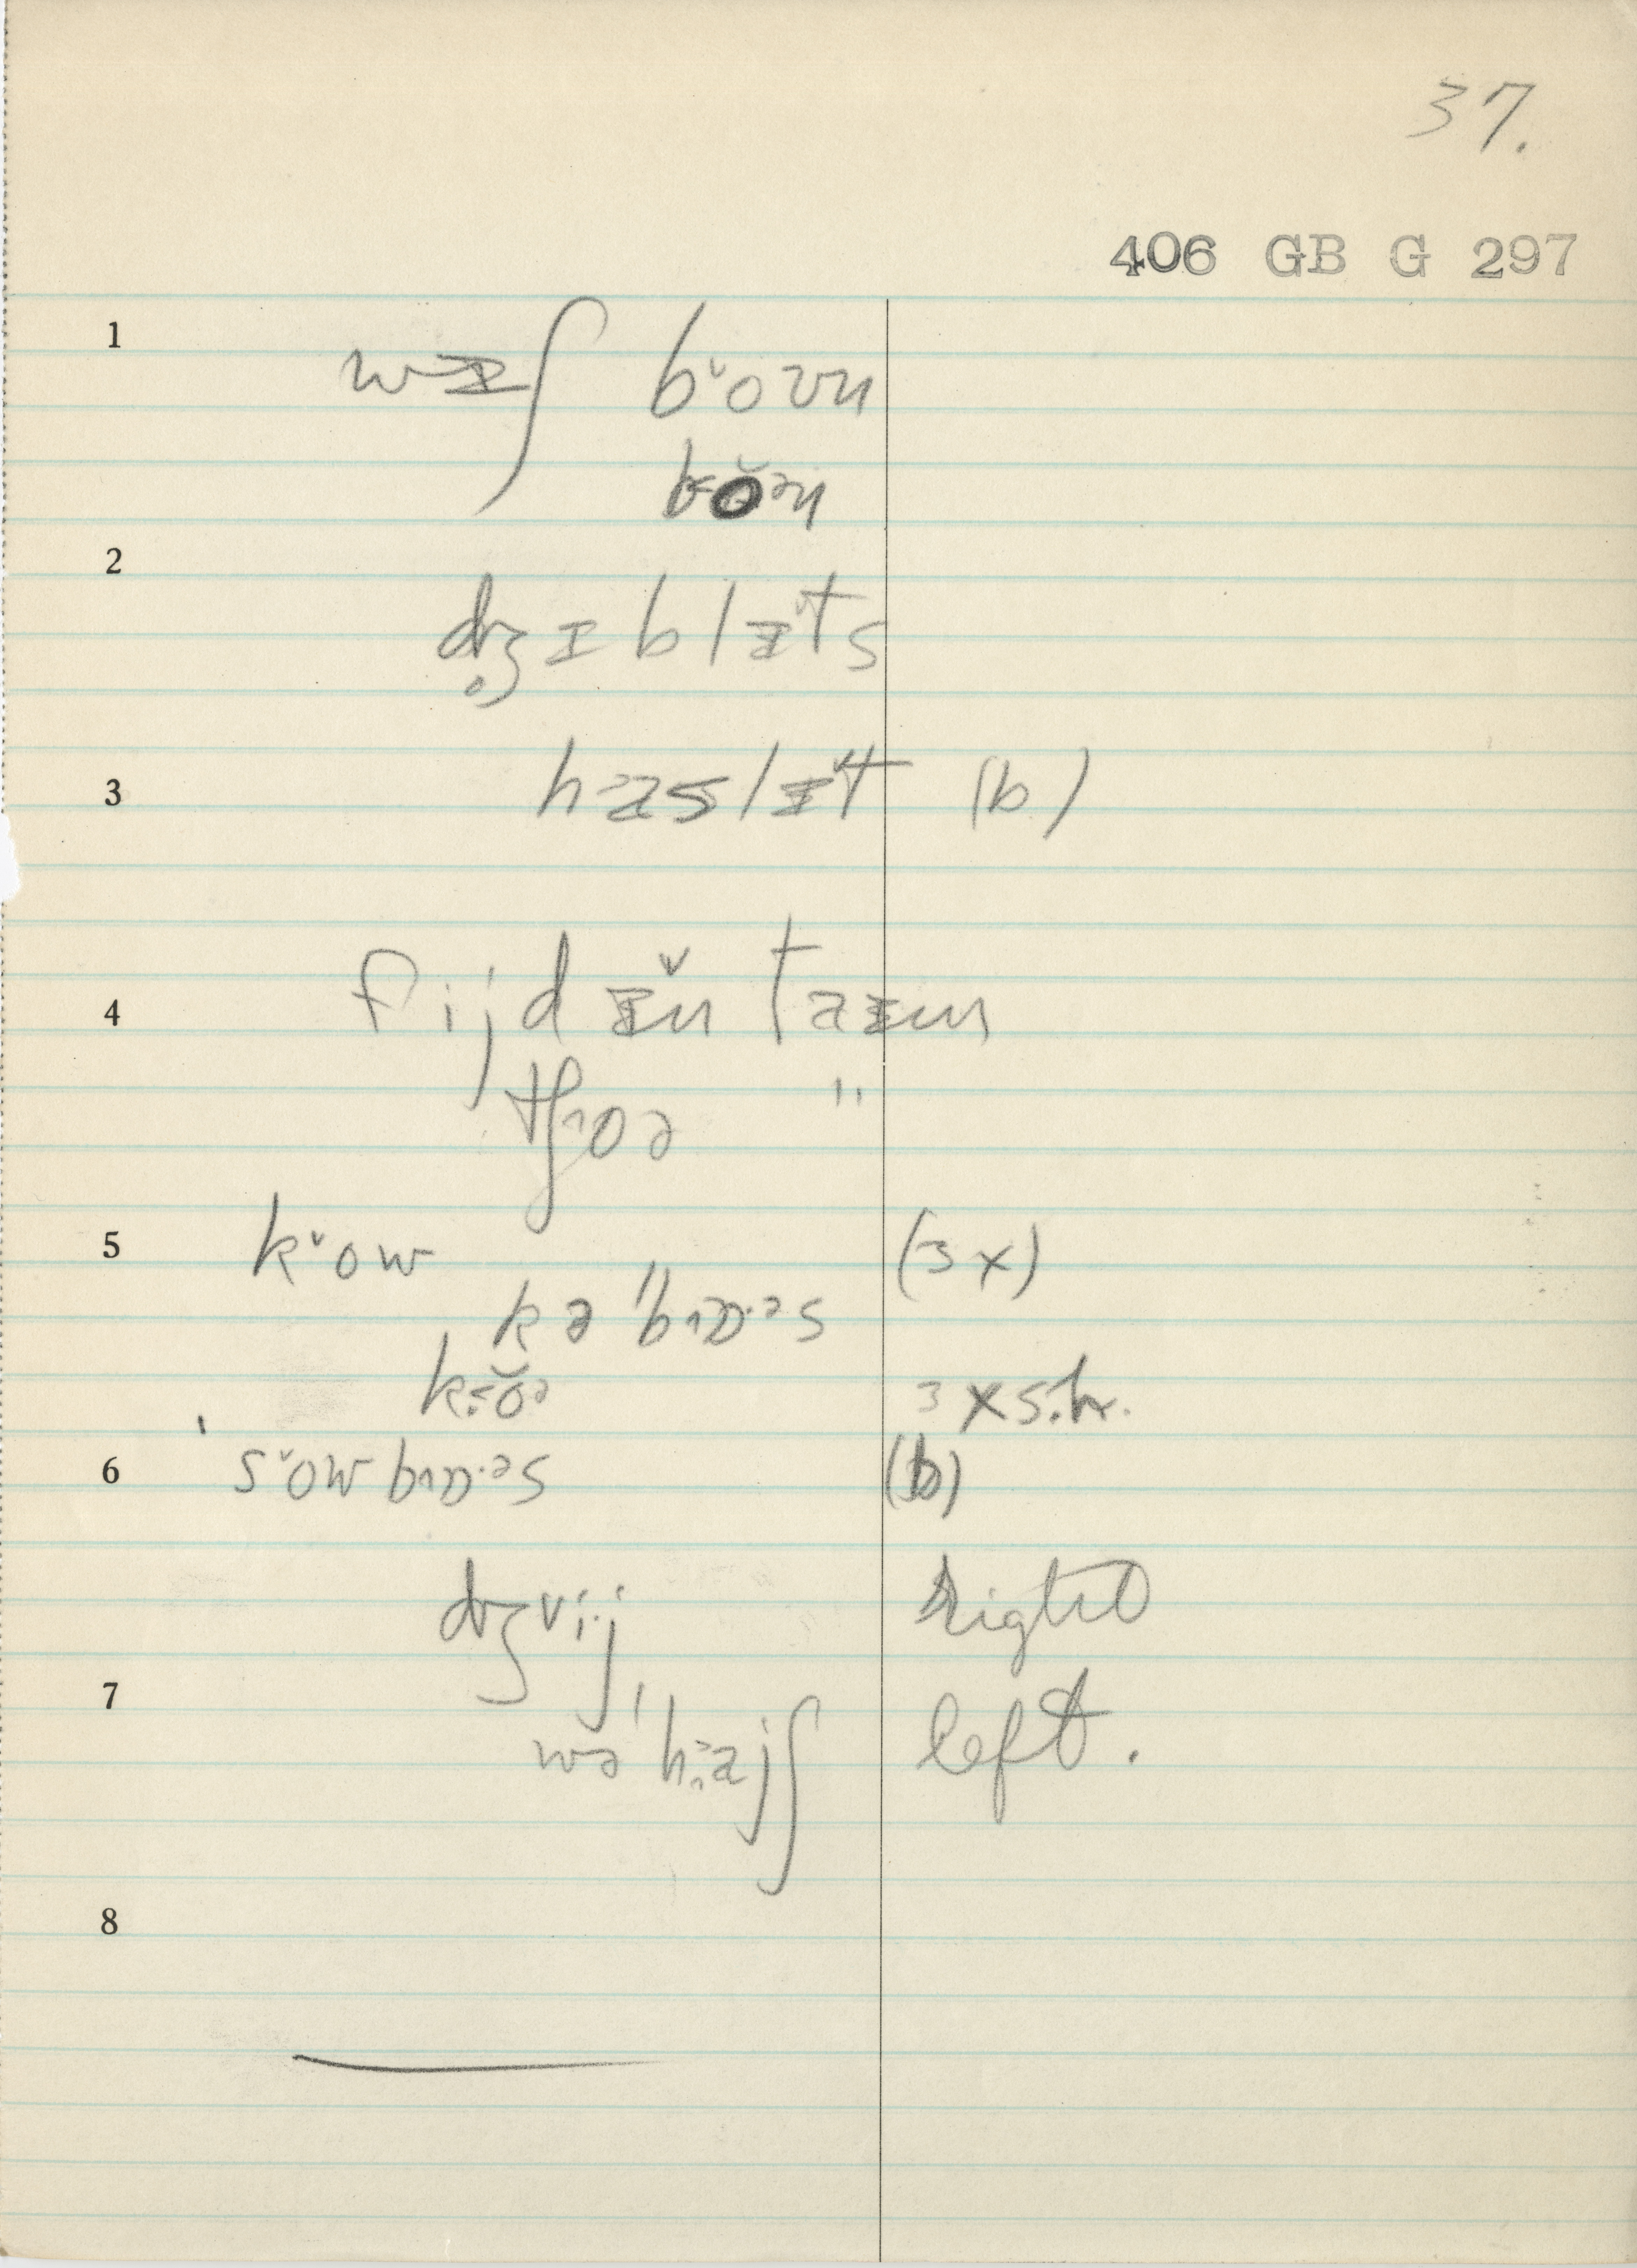 37.
406 GB G 297
1
wɪʃ bˇoʊn
bǒ̞ən
2
dʒ̥ɪblɪts
3 haslɪt (b)
4 fijdɪ̌n taɪm
tʃoə "
5 kˇow (3x)
kə'bɒ·əs
k<ŏə 3 x s.h.
6 sˇowbɒ·əs (b)
dʒˇij right
7 wə'hajʃ left.
8